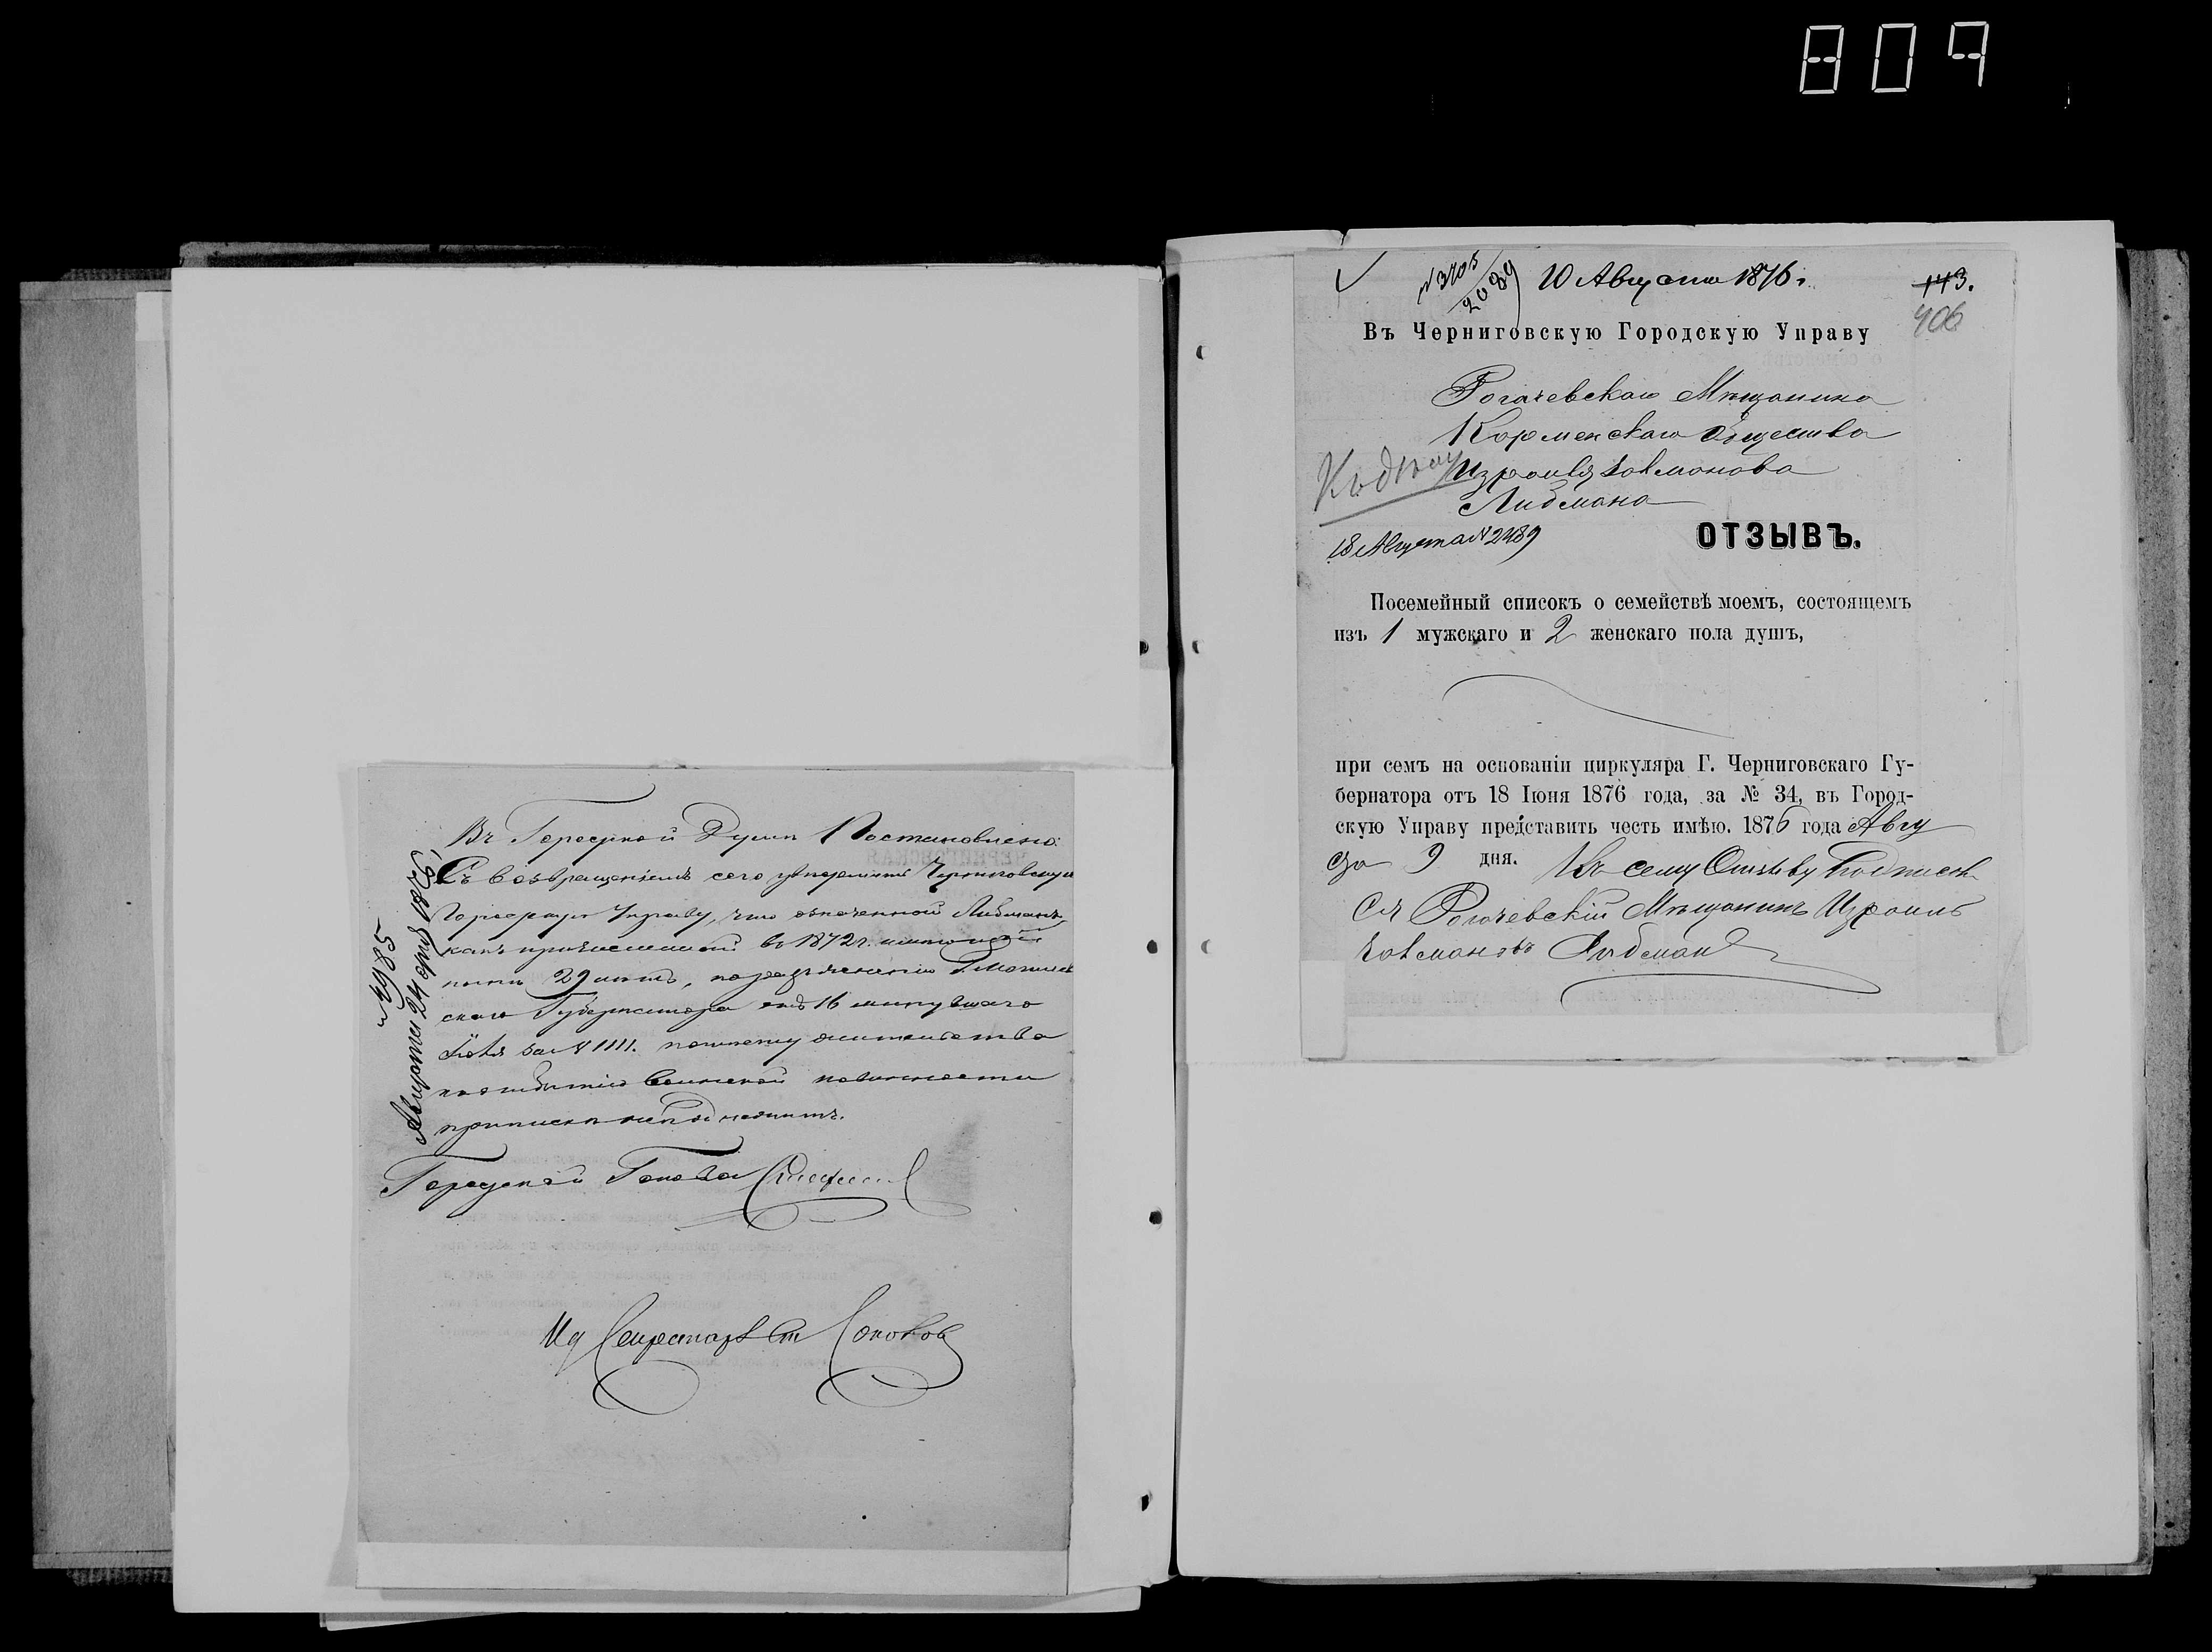 809
Въ Городской Думѣ Постановлено:
Съ возвращеніемъ сего увѣдомить Черниговскую
Городскую Управу, что означенной Либманъ,
какъ причисленный въ 1872 г.
29 лѣтъ, по разъясненію Г. Могилев
скаго Губернатора отъ 16 минувшаго
Іюля за № 1111. по
по отбытію воинской повинности
припискѣ не подлежитъ.
Городской Голова
Ид Секретаря Соколов
Августа 24 дня 1876
10 Августа 1876 г.
143.
406
Въ Черниговскую Городскую Управу
Рогачевскаго Мѣщанина
Корменскаго Общества
Израиля Залманова
Либмана
18 Августа № 2489
ОТЗЫВЪ.
Посемейный списокъ о семействѣ моемъ, состоящемъ
изъ 1 мужскаго и 2 женскаго пола душъ,
при семъ на основаніи циркуляра Г. Черниговскаго Гу-
бернатора отъ 18 Іюня 1876 года, за № 34, въ Город-
скую Управу представить честь имѣю. 1876 года Авгу
ста 9 дня. Къ сему Отзыву Подписал
ся Рогачевскій Мѣщанинъ Израиль
Залмановъ Либман